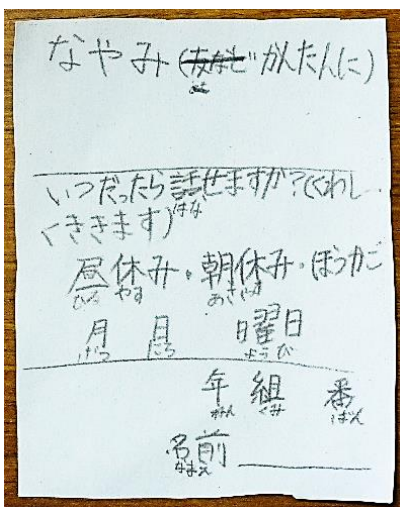 なやみ(かんたんに)
いつだったら話せますか?(くわし
はな
くききます)
昼休み・朝休み・ほうかご
ひる やす あさやす
月 月 日曜日
がつ にち ようび
年 組 番
ねん くみ ばん
名前
なまえ